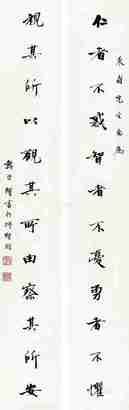 仁者不惑智者不憂勇者不懼
視其所以觀其所由察其所安